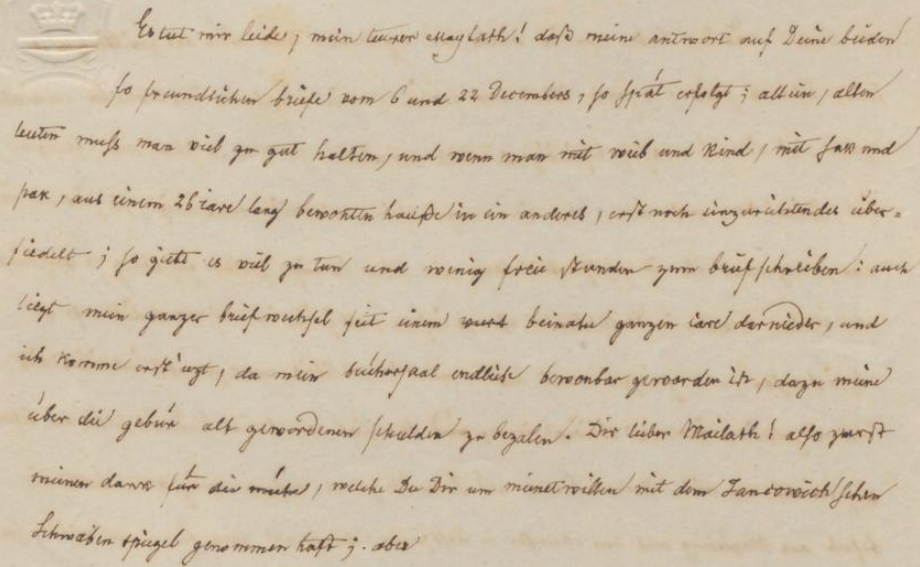 Es tut mir leide, mein teurer Maylath! daß meine antwort auf Deine beiden
so freundlichen briefe vom 6 und 22 Decembers, so spät erfolgt; allein, alten
leuten muss man viel zu gut halten, und wenn man mit weib und kind, mit sak und
pak, aus einem 26 iare lang bewonten hause in ein anderes, erst noch einzurichtendes über=
siedelt; so giebt es viel zu tun und wenig freie stunden zum briefschreiben: auch
liegt mein ganzer briefwechsel seit einem beinahe ganzen iare darnieder, und
ich komme erst iezt, da mein büchersaal endlich bewonbar geworden ist, dazu meine
über die gebür alt gewordenen schulden zu bezalen. Dir lieber Mailath! also zuerst
meinen dank für die mühe, welche Du Dir um meinetwillen mit dem Jancowich'schen
Schwabenspiegel genommen hast; aber